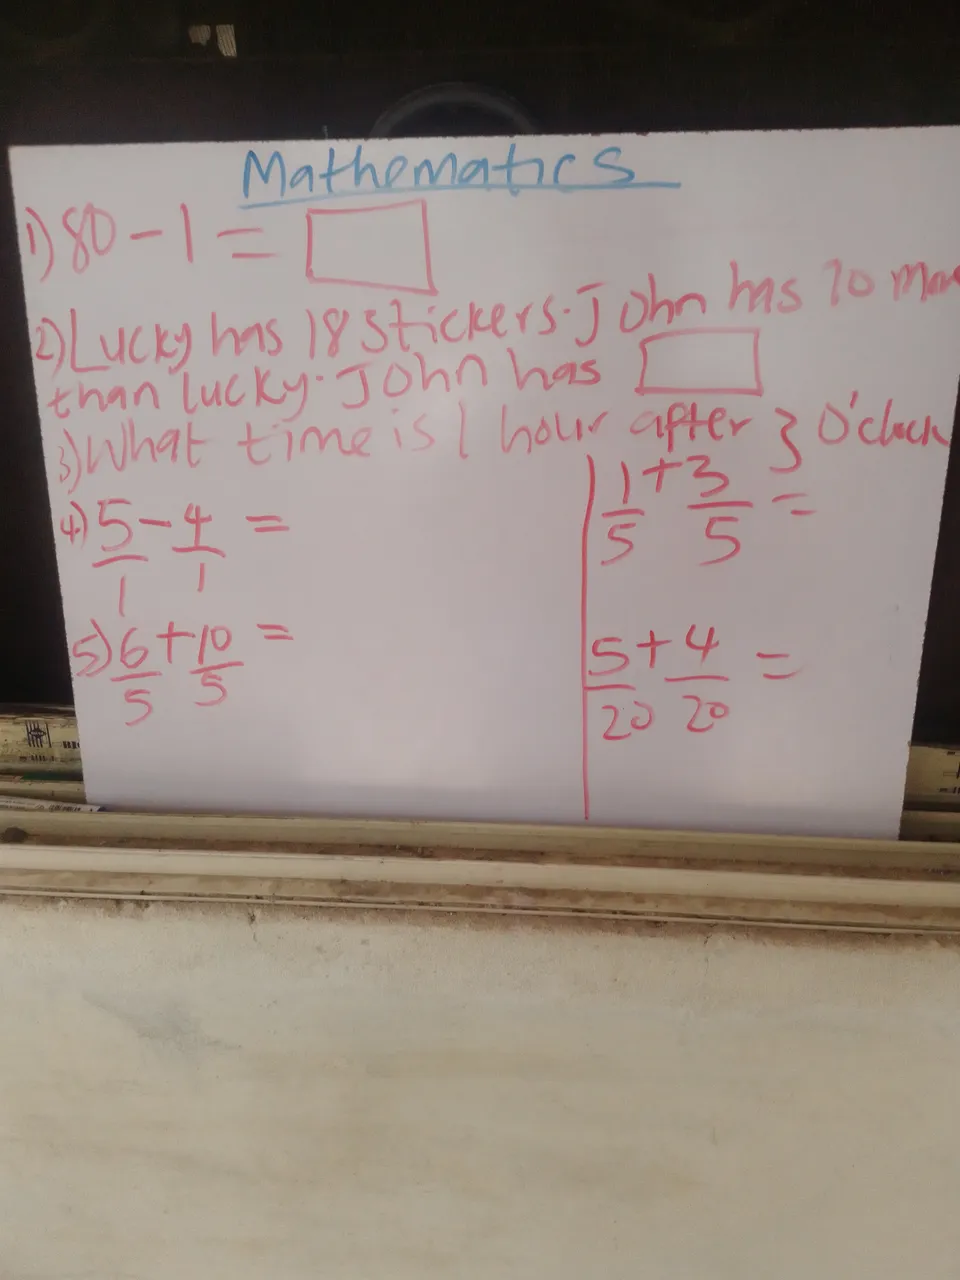 Mathematics
1) 80 - 1 =
2) Lucky has 18 Stickers. John has 10 more
than lucky. John has
3) What time is 1 hour after 3 O'clock
4) 5/1 - 4/1 =
1/5 + 3/5 =
5) 6/5 + 10/5 =
5/20 + 4/20 =